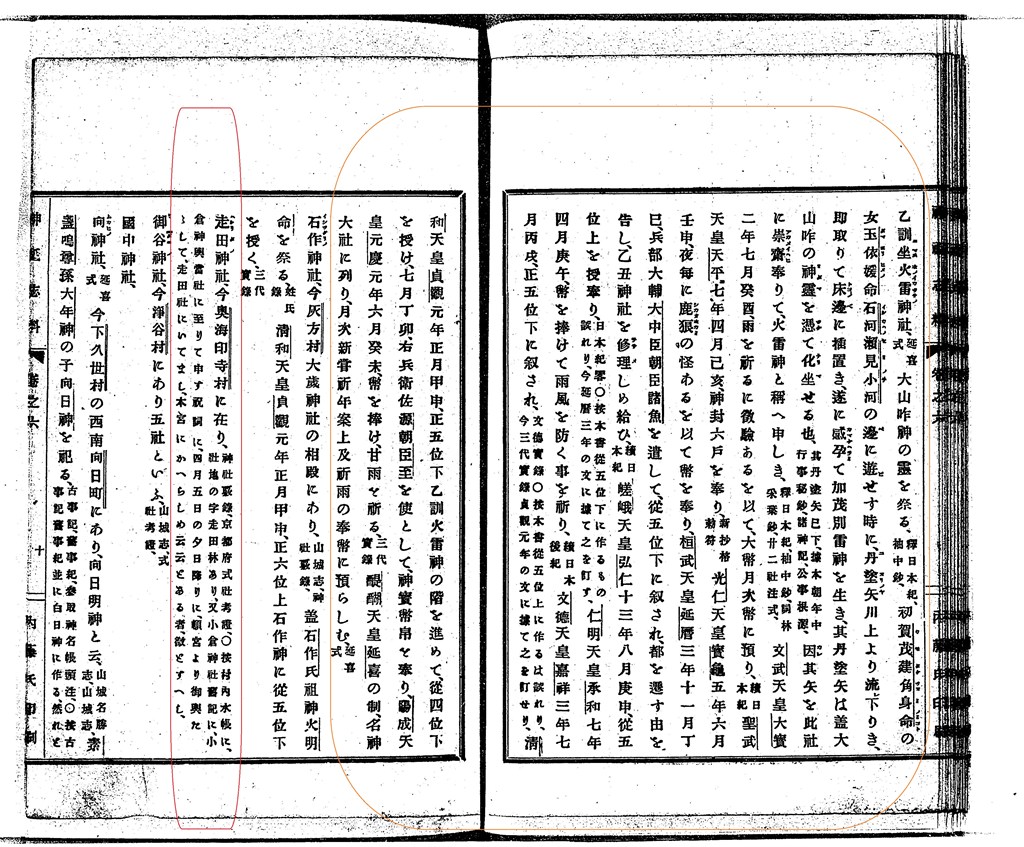 乙訓坐火雷神社、延喜式 大山咋神の靈を祭る、釋日本紀、袖中鈔、 初賀茂建角身命の
女玉依媛命石河瀨見小河の邊に遊せす時に、丹塗矢川上より流下りき、
即取りて床邊に插置き、遂に感孕て加茂別雷神を生き、其丹塗矢は盖大
山咋の神靈を憑て化坐せる也、其丹塗矢已下、據本朝年中行事秘鈔、諸神記、公事根源、 因其矢を此社
に崇齋奉りて、火雷神と稱へ申しき、釋日本紀袖中鈔、詞林采葉鈔廿二社注式、 文武天皇大寶
二年七月癸酉、雨を祈るに徵驗あるを以て、大幣月次幣に預り、續日本紀 聖武
天皇天平七年四月己亥、神封六戸を奉り、新抄格勅符 光仁天皇寶龜五年六月
壬申、夜每に鹿狼の怪あるを以て幣を奉り、桓武天皇延曆三年十一月丁
巳、兵部大輔大中臣朝臣諸魚を遣して、從五位下に叙され、都を遷す由を
告し、乙丑神社を修理しめ給ひ、續日本紀 嵯峨天皇弘仁十三年八月庚申、從五
位上を授奉り、日本紀畧〇按本書從五位下に作るもの誤れり、今延曆三年の文に據て之を訂す、 仁明天皇承和七年
四月庚午、幣を捧けて雨風を防く事を祈り、續日本後紀 文德天皇嘉祥三年七
月丙戌、正五位下に叙され、文德實錄〇按本書從五位上に作るは誤れり、今三代實錄貞觀元年の文に據て之を訂せり、 清
和天皇貞觀元年正月甲申、正五位下乙訓火雷神の階を進めて、從四位下
を授け、七月丁卯右兵衛佐源朝臣至を使として、神寶幣帛を奉り、陽成天
皇元慶元年六月癸未幣を捧け、甘雨を祈る、三代實錄 醍醐天皇延喜の制、名神
大社に列り、月次新甞祈年案上及祈雨の奉幣に預らしむ、延喜式
石作神社、今灰方村大歲神社の相殿にあり、山城志、神社覈錄、 盖石作氏祖神火明
命を祭る、姓氏錄 清和天皇貞觀元年正月甲申、正六位上石作神に從五位下
を授く、三代實錄
走田神社、今奧海印寺村に在り、神社覈錄、京都府式社考證、〇按村內水帳に、社地の字走田林あり、又小倉神社舊記に、小
倉神輿當社に至りて申す祝詞に、四月五日の夕日降りに頓宮より御輿た
して、走田社にいてまし、本宮にかへらしめ云云とある者、徵とすへし、
御谷神社、今淨谷村にあり五社といふ、山城志、式社考證、
國中神社、
向神社、延喜式 今下久世村の西南向日町にあり、向日明神と云、山城名勝志、山城志、 素
盞嗚尊孫大年神の子向日神を祀る、古事記、舊事紀、參取神名帳頭注、〇按古事記舊事紀並に白日神に作る然れと
神祇志料
卷之六
十
內藤氏印刷